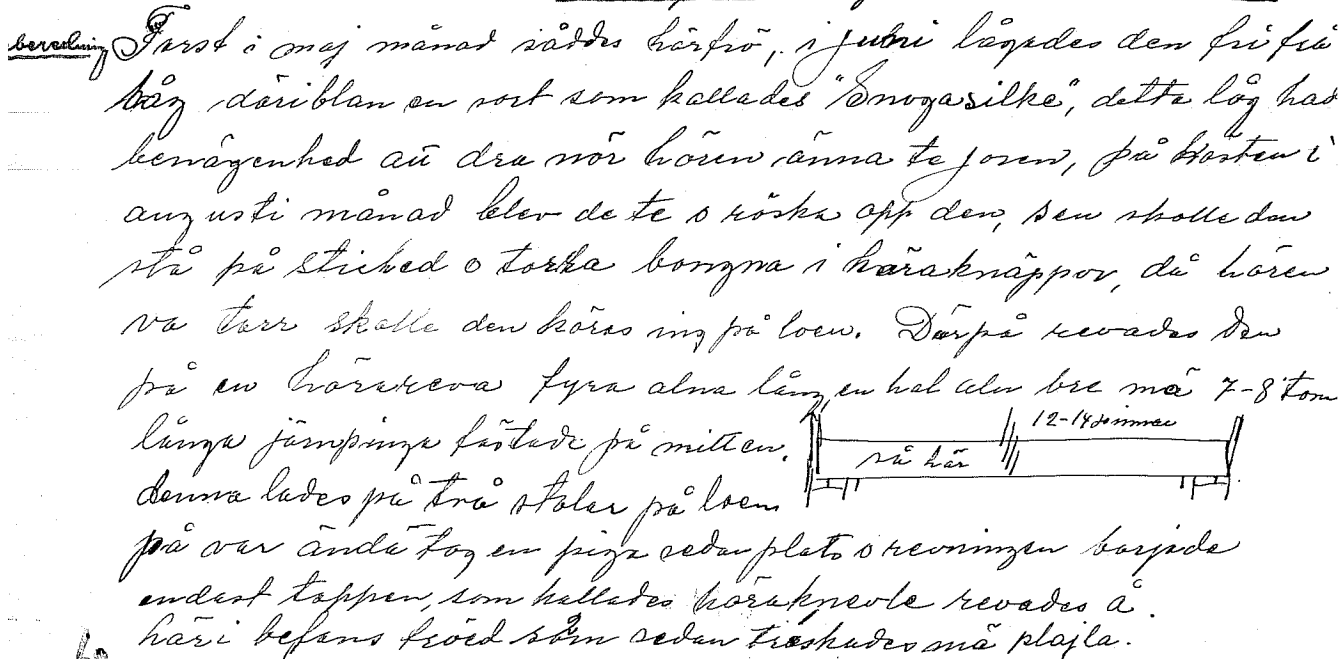 beredning Først i maj månad såddes hörfrö, i juni lågades den fri frå
låg däriblan en sort som kallades "Snogasilke", detta låg had
benägenhed au dra nör hören änna te joren, på hösten i
augusti månad blev de te o röska opp den, sen skolle den
stå på sticked o torka bongna i höraknäppor, då hören
va tarr skolle den köras ing på loen. Därpå revades den
på en hörareva fyra alna lång, en hal aln bre mä 7-8 tom
långa järnpinga fästade på mitten.
12-14 pinnar
så här
denna lades på två stolar på loen
på var ända tog en piga sedan plats o revningen barjade
endast toppen, som kallades höraknevle revades å.
häri befans fröed som sedan tröskades mä plajla.